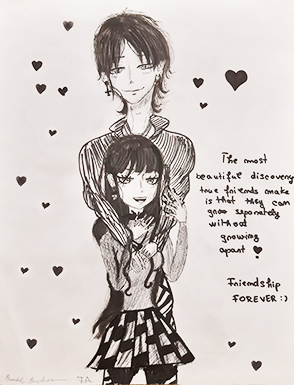 The most
beautiful discovery
true friends make
is that they can
grow separately
without
growing
apart
Friendship
FOREVER :)
7A